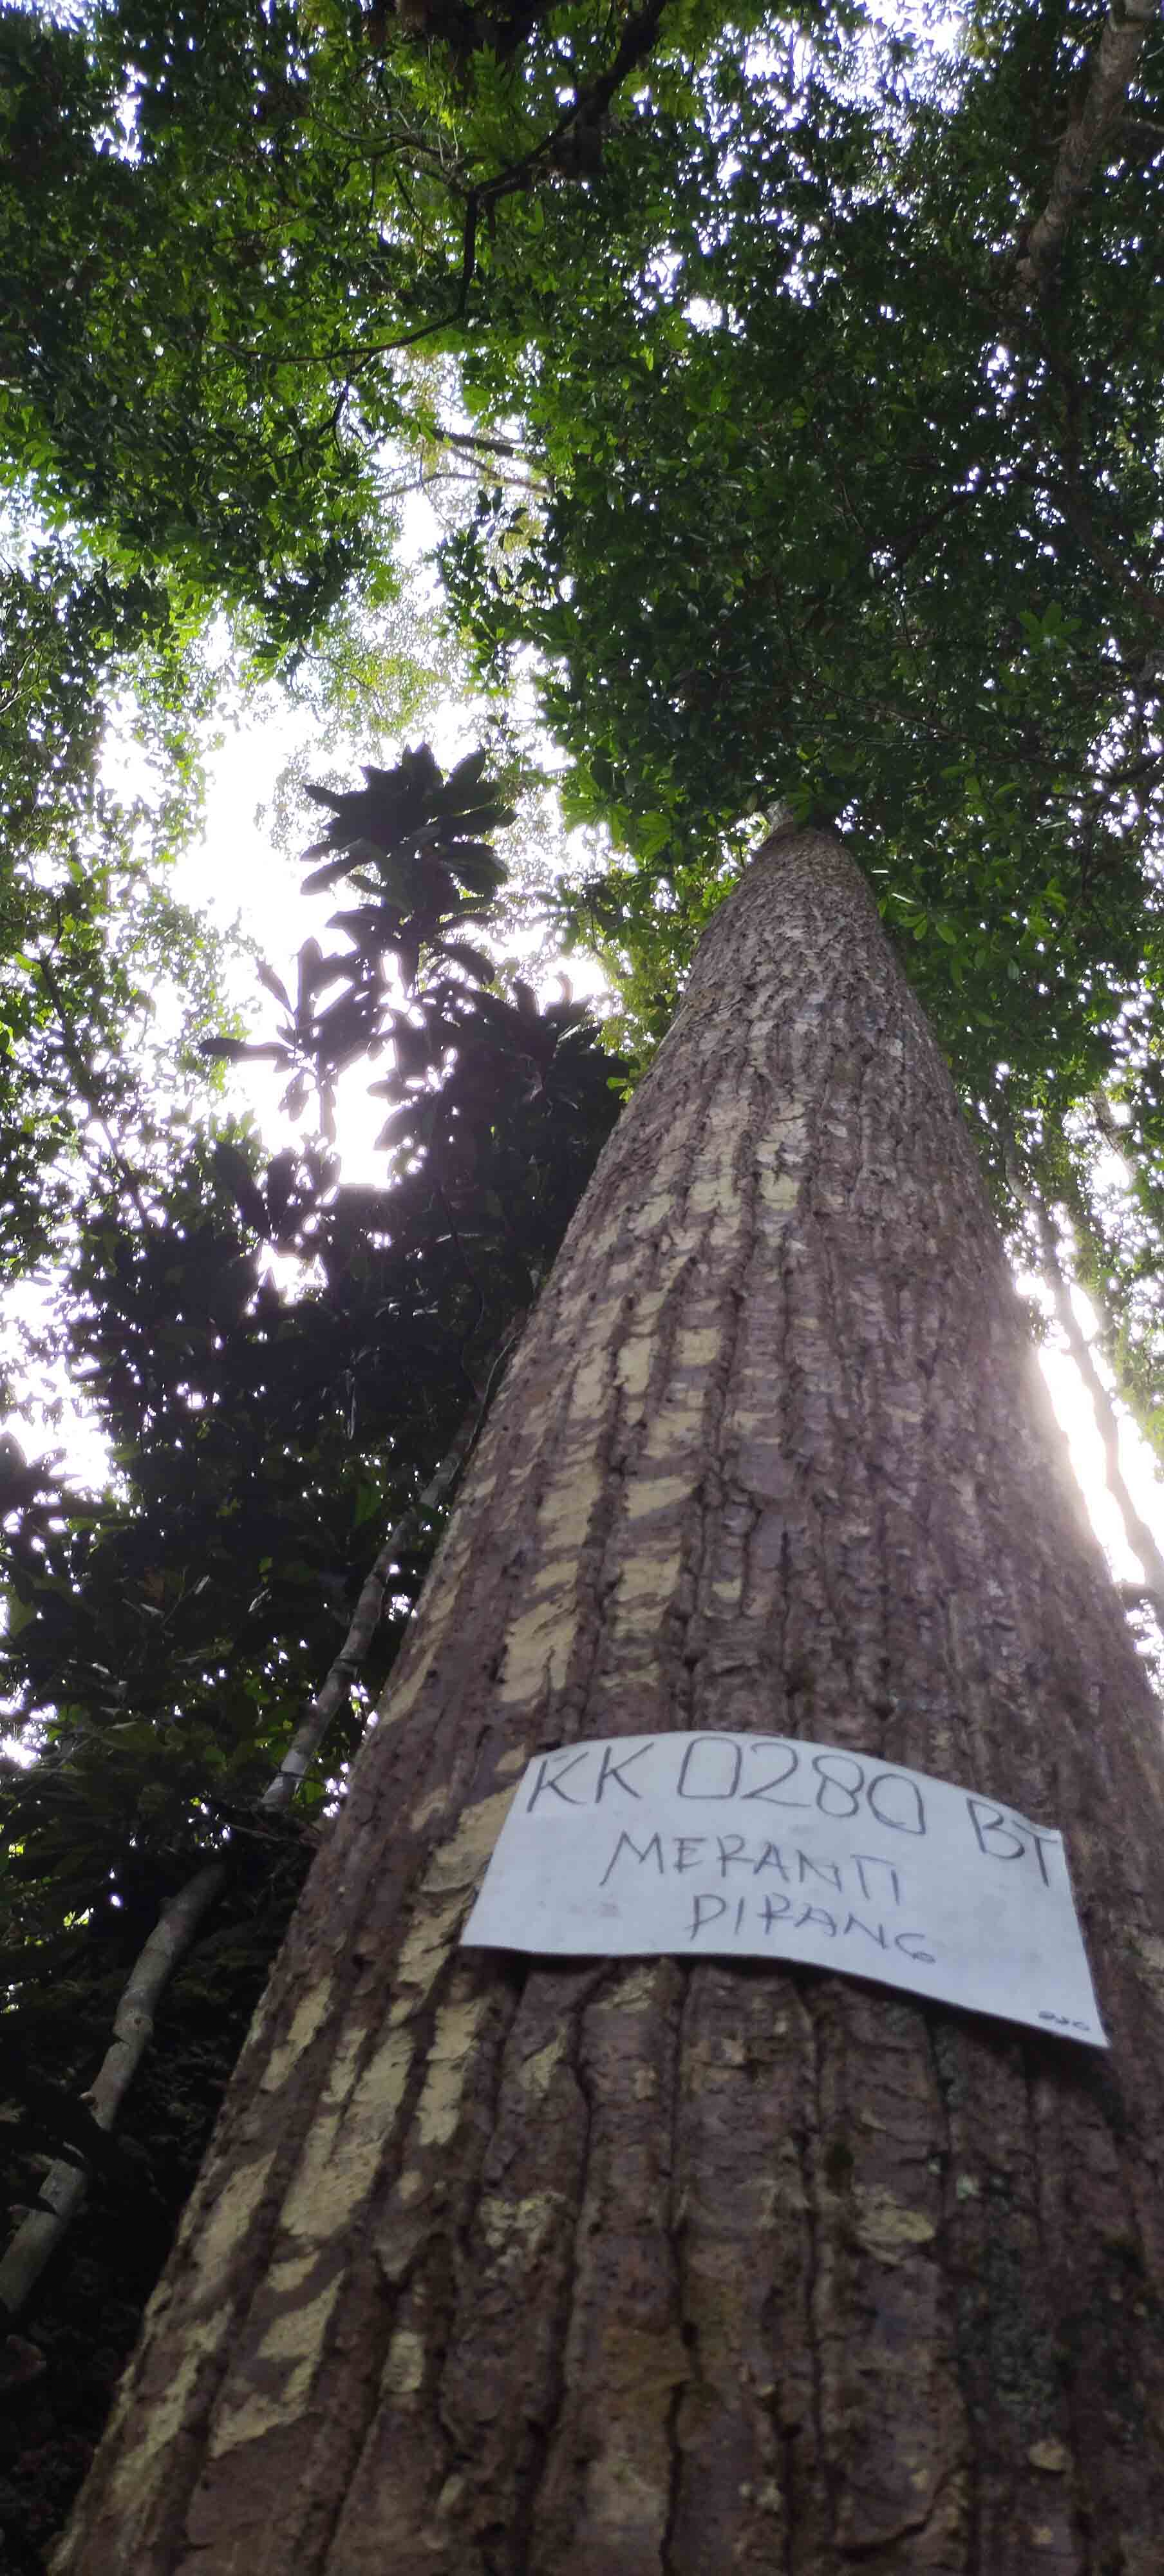 KK 0280 BT
MERANTI
PIPANG